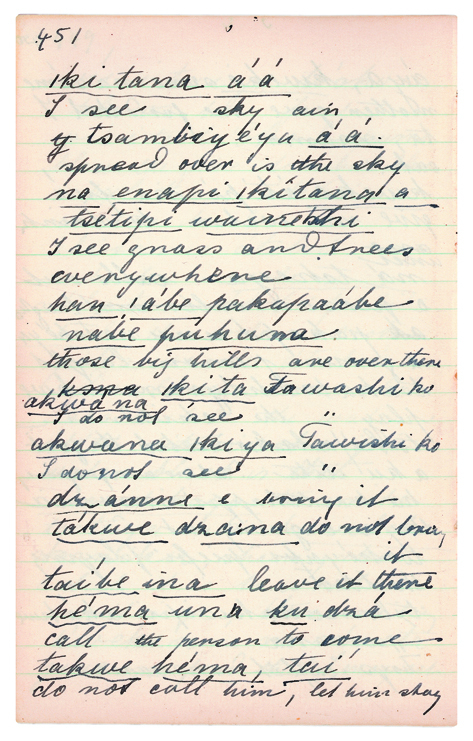 451
iki tana á'á
I see sky ain
y tsambiyéyu á'á.
spread over is the sky
na enapi ikitana a
tsétipi waineshi
I see grass and trees
everywhere
han iábe pakapaábe
nabe puhuna.
those big hills are over there
iki ta Tawashi ko
akwana
I do not see "
akwana ikiya Tawishi ko
I do not see "
dzanne e bring it
tákwe dzaina do not bring
it
taíbe ina leave it there
héma una ku dzá
call the person to come
takwe héma, taí
do not call him, let him stay